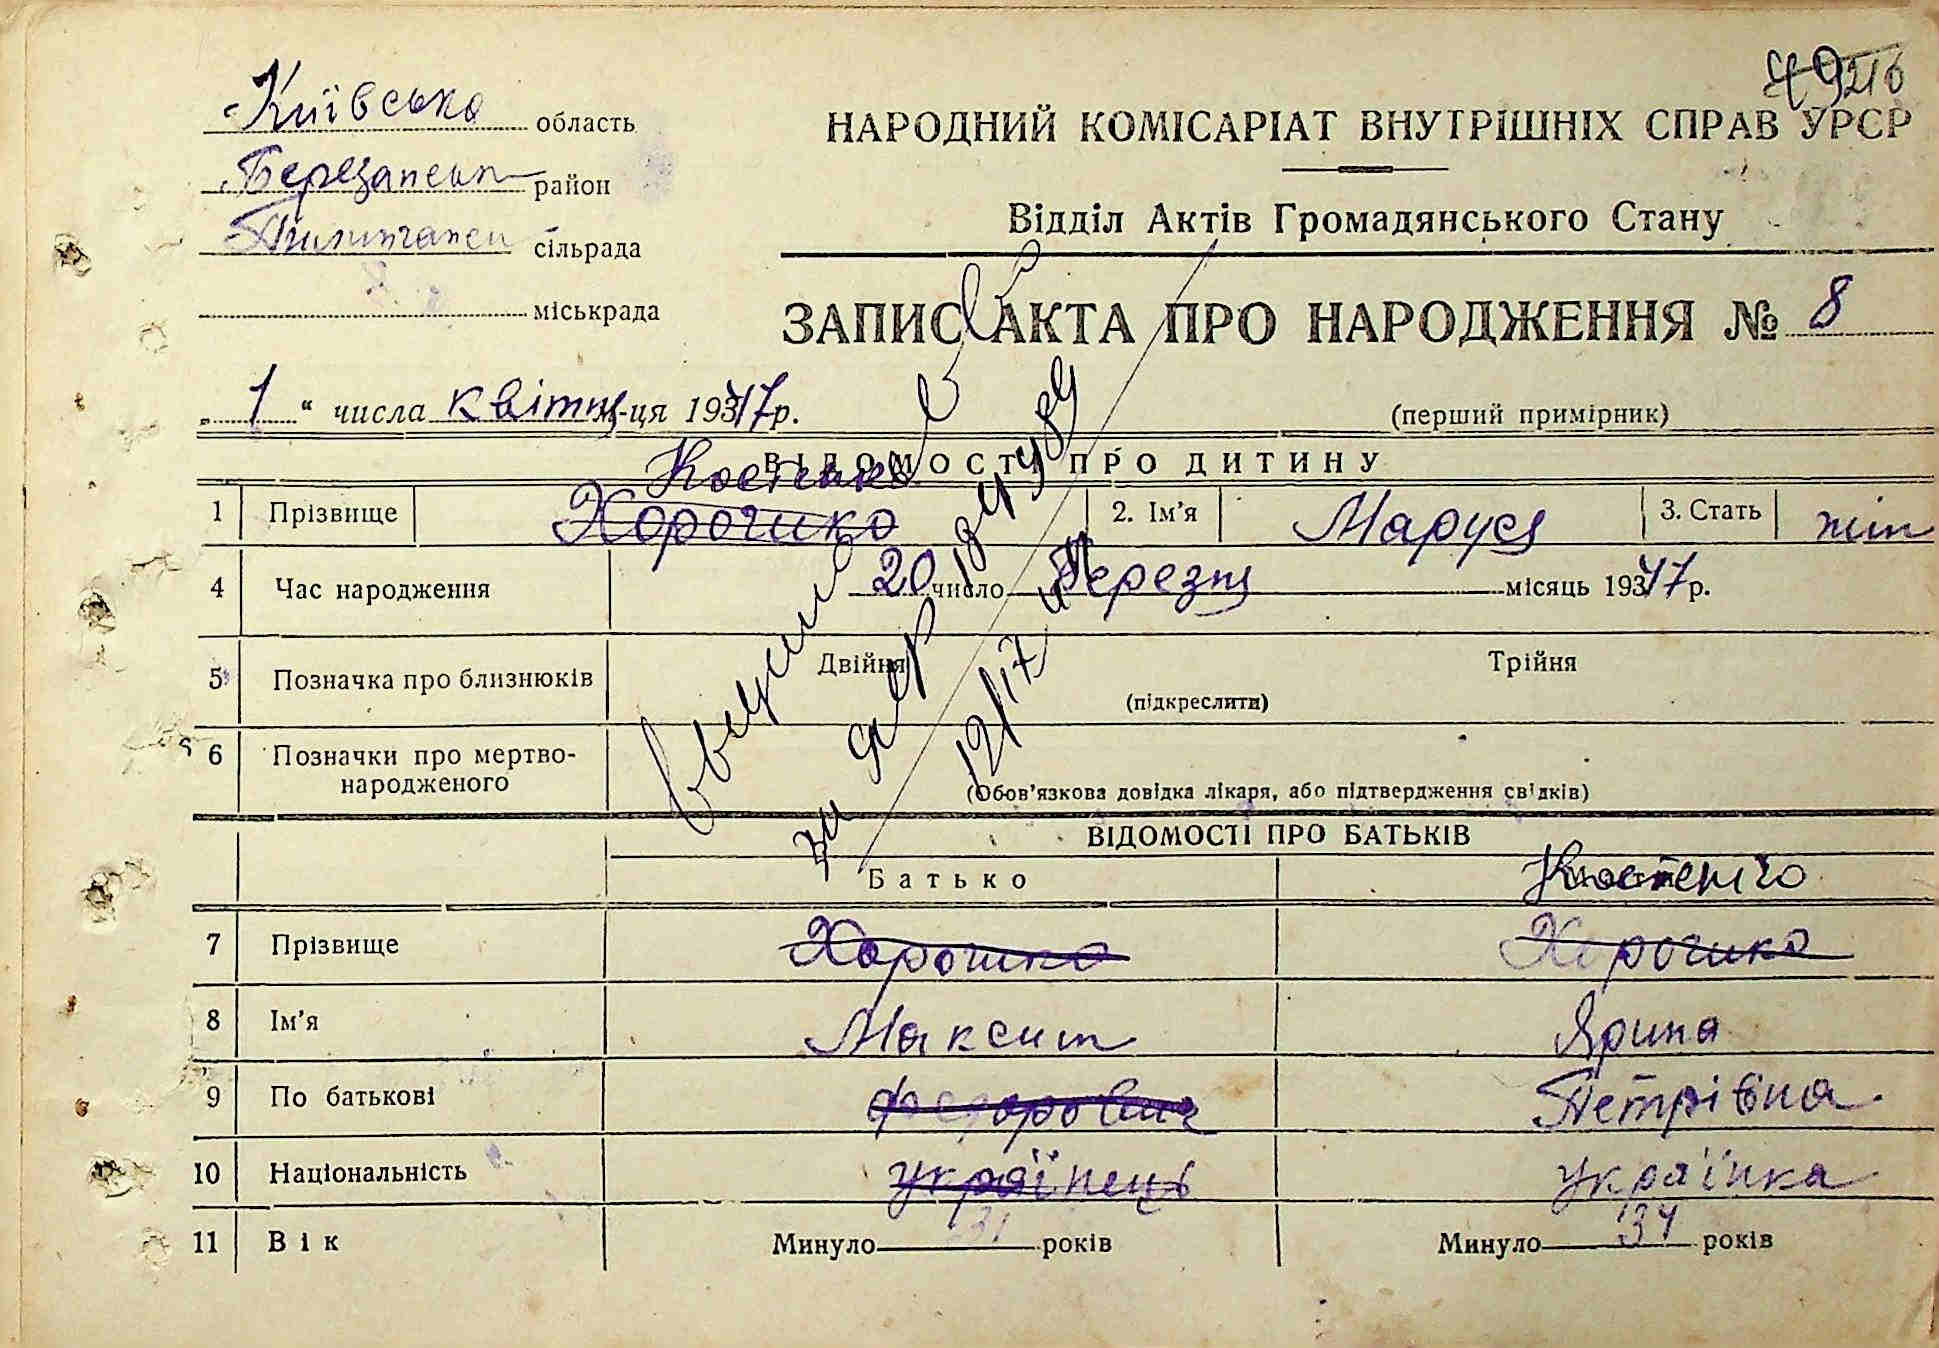 9216
Київсько область
НАРОДНИЙ КОМІСАРІАТ ВНУТРІШНІХ СПРАВ УРСР
Березанськ район
сільрада
Відділ Актів Громадянського Стану
міськрада
ЗАПИС АКТА ПРО НАРОДЖЕННЯ № 8
„ 1 “ числа квітня м-ця 1947 р.
(перший примірник)
ВІДОМОСТІ ПРО ДИТИНУ
Костенко
1 Прізвище Хорошко 2. Ім'я Маруся 3. Стать жін
4 Час народження 20 число Березня місяць 1947 р.
5 Позначка про близнюків Двійня Трійня
(підкреслити)
6 Позначки про мертво-
народженого
(Обов'язкова довідка лікаря, або підтвердження свідків)
ВІДОМОСТІ ПРО БАТЬКІВ
Батько Костенко
7 Прізвище Хорошко Хорошко
8 Ім'я Максим Ярина
9 По батькові Федорович Петрівна
10 Національність українець українка
11 Вік Минуло 31 років Минуло 34 років